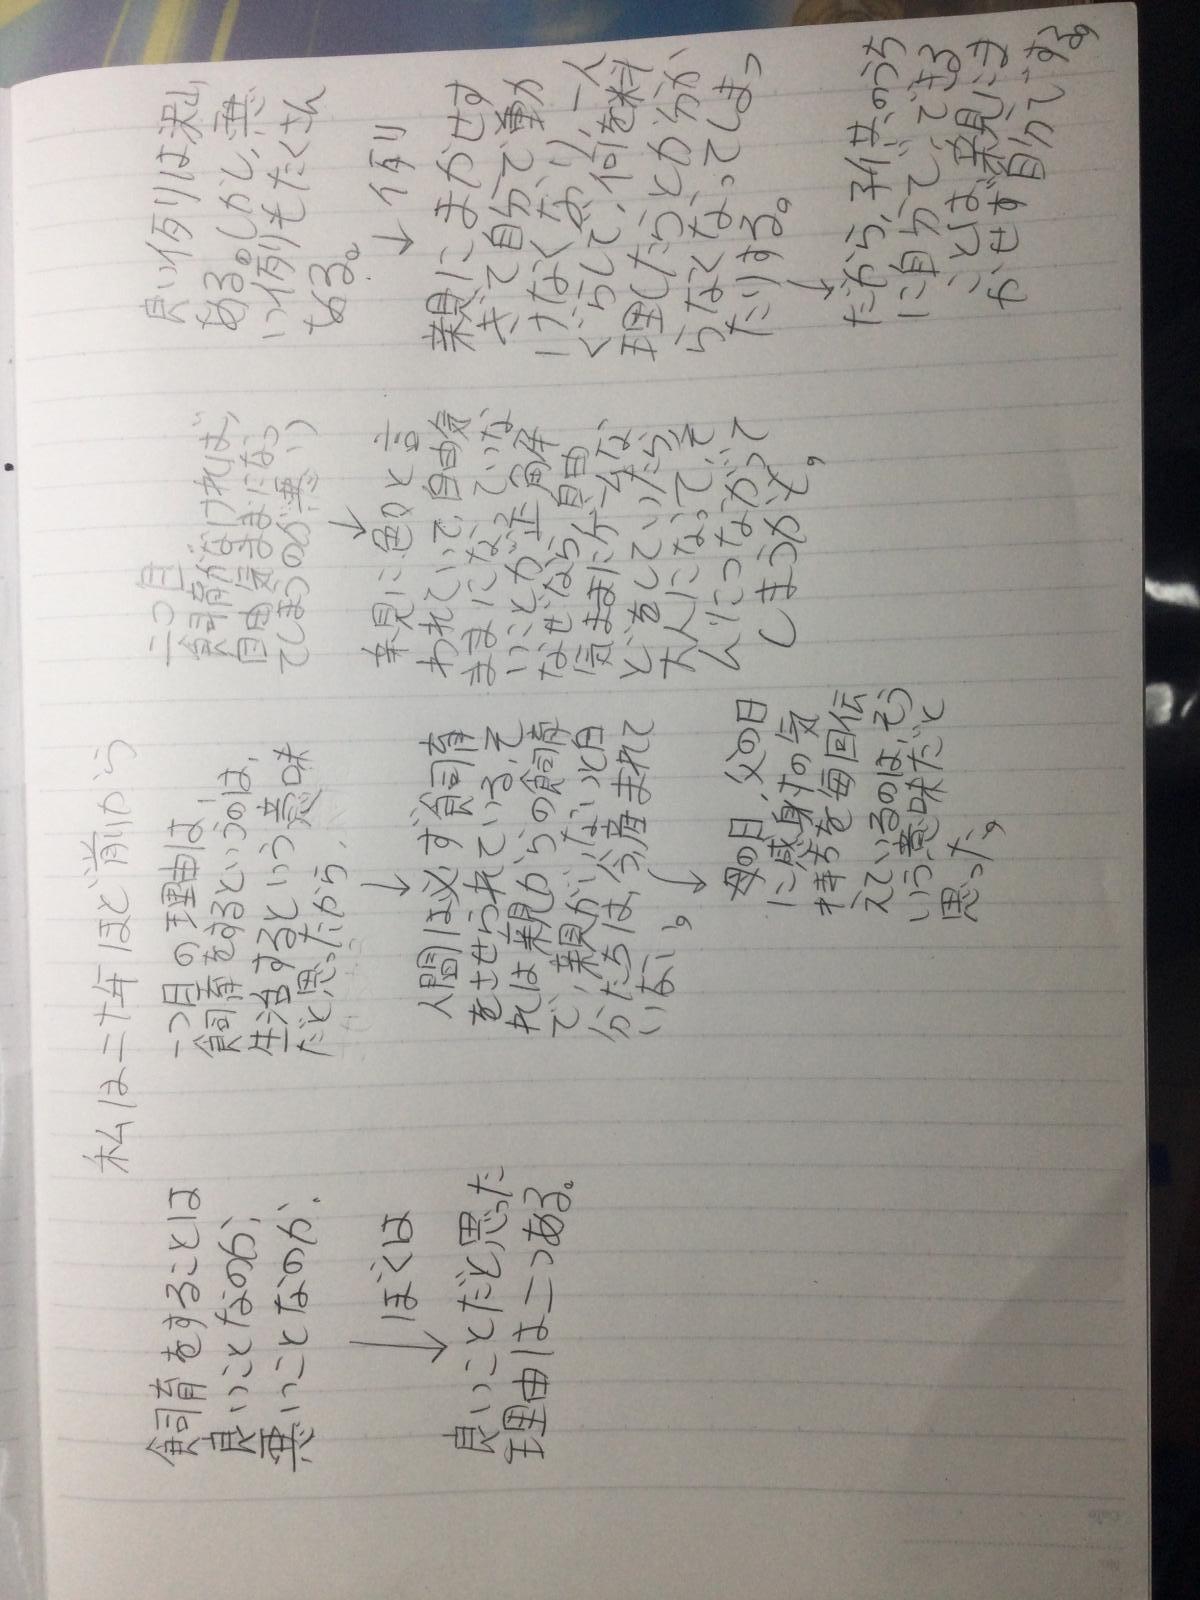 私は二十年ほど前から
飼育をすることは
良いことなのか、
悪いことなのか.
ぼくは
良いことだと思った
理由は二つある。
一つ目の理由は、
飼育をするというのは、
生活するという意味
だと思ったから.
人間は必ず飼育
をさせられている、そ
れは親からの飼育
で、親がいないと自
分たちは、今産まれて
いない。
母の日、父の日
に感身すの気
持ちを毎回伝
えているのは、そう
いう意味だと
思った。
二つ目
飼育がなければ、
自由気ままになっ
てしまうのが悪い
親に色々と言
われていて、自由気
ままになっていな
いことが正解
なぜなら、自由
気ままにゲームな
どをしていたら
大人になって、そ
んにつながって
しまうかも。
良い例は沢山
ある。しかし、悪
い例もたくさん
ある。
例
親にまかせす
ぎて自分で動か
けなくなり、一人
ぐらしで、何を料
理したらとか分か
らなくなってしまっ
たりする。
だから、子供のうち
に自分で、できる
ことは、親にま
かせず自分でする。
Date
No.